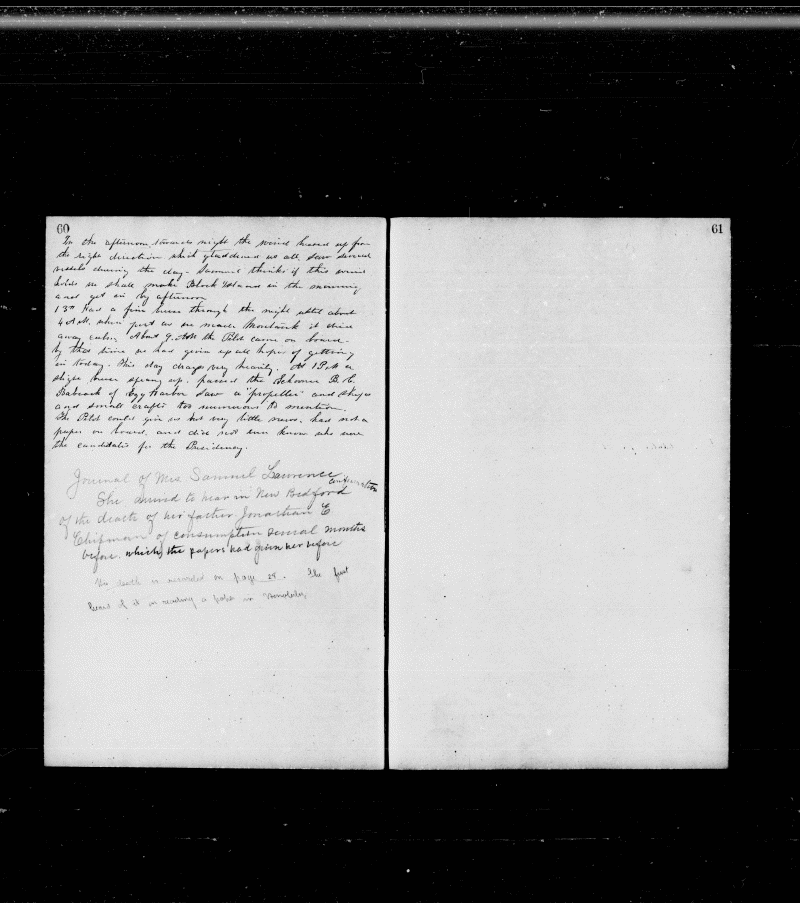 60
In the afternoon towards night the wind hauled up from
the right direction which gladdened us all, saw several
vessels during the day. Samuel thinks if this wind
holds we shall make Block Island in the morning
and get in by afternoon
13th Had a fine breeze through the night until about
4 A.M. when just as we made Montauk it died
away calm. About 9 A.M. the Pilot came on board
by that time we had given up all hopes of getting
in today. This day drags very heavily. At 1 P.M. a
slight breeze sprang up, passed the Schooner B. C.
Babcock of Egg Harbor Saw a "propeller" and ships
and small crafts too numerous to mention.
The Pilot could give us but very little news, had not a
paper on board, and did not even know who were
the candidates for the Presidency.
Journal of Mrs. Samuel Lawrence
She arrived to hear in New Bedford
of the death of her father Jonathan E.
Chipman of consumption several months
before. which the papers had given her before
His death is recorded on page 28. She first
heard of it in reading a paper in Honolulu
61